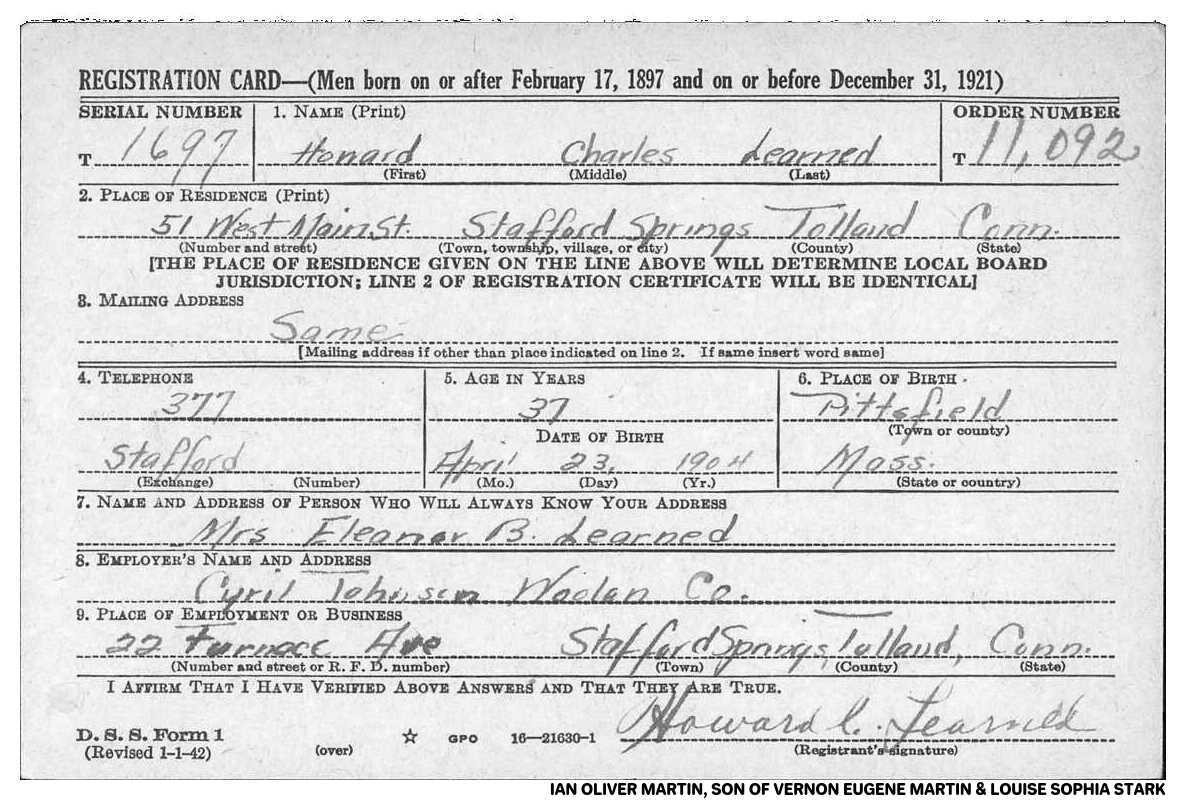 REGISTRATION CARD—(Men born on or after February 17, 1897 and on or before December 31, 1921)
SERIAL NUMBER 1. NAME (Print) ORDER NUMBER
T 1697 Howard Charles Learned T 11,092
(First) (Middle) (Last)
2. PLACE OF RESIDENCE (Print)
51 West Main St. Stafford Springs Tolland Conn.
(Number and street) (Town, township, village, or city) (County) (State)
[THE PLACE OF RESIDENCE GIVEN ON THE LINE ABOVE WILL DETERMINE LOCAL BOARD
JURISDICTION; LINE 2 OF REGISTRATION CERTIFICATE WILL BE IDENTICAL]
3. MAILING ADDRESS
Same
[Mailing address if other than place indicated on line 2. If same insert word same]
4. TELEPHONE 5. AGE IN YEARS 6. PLACE OF BIRTH
377 37 Pittsfield
DATE OF BIRTH (Town or county)
Stafford April 23, 1904 Mass.
(Exchange) (Number) (Mo.) (Day) (Yr.) (State or country)
7. NAME AND ADDRESS OF PERSON WHO WILL ALWAYS KNOW YOUR ADDRESS
Mrs Eleanor B. Learned
8. EMPLOYER'S NAME AND ADDRESS
Cyril Johnson Woolen Co.
9. PLACE OF EMPLOYMENT OR BUSINESS
22 Furnace Ave Stafford Springs, Tolland, Conn.
(Number and street or R. F. D. number) (Town) (County) (State)
I AFFIRM THAT I HAVE VERIFIED ABOVE ANSWERS AND THAT THEY ARE TRUE.
Howard C. Learned
D. S. S. Form 1
(Revised 1-1-42) (over) ☆ GPO 16—21630-1 (Registrant's signature)
IAN OLIVER MARTIN, SON OF VERNON EUGENE MARTIN & LOUISE SOPHIA STARK